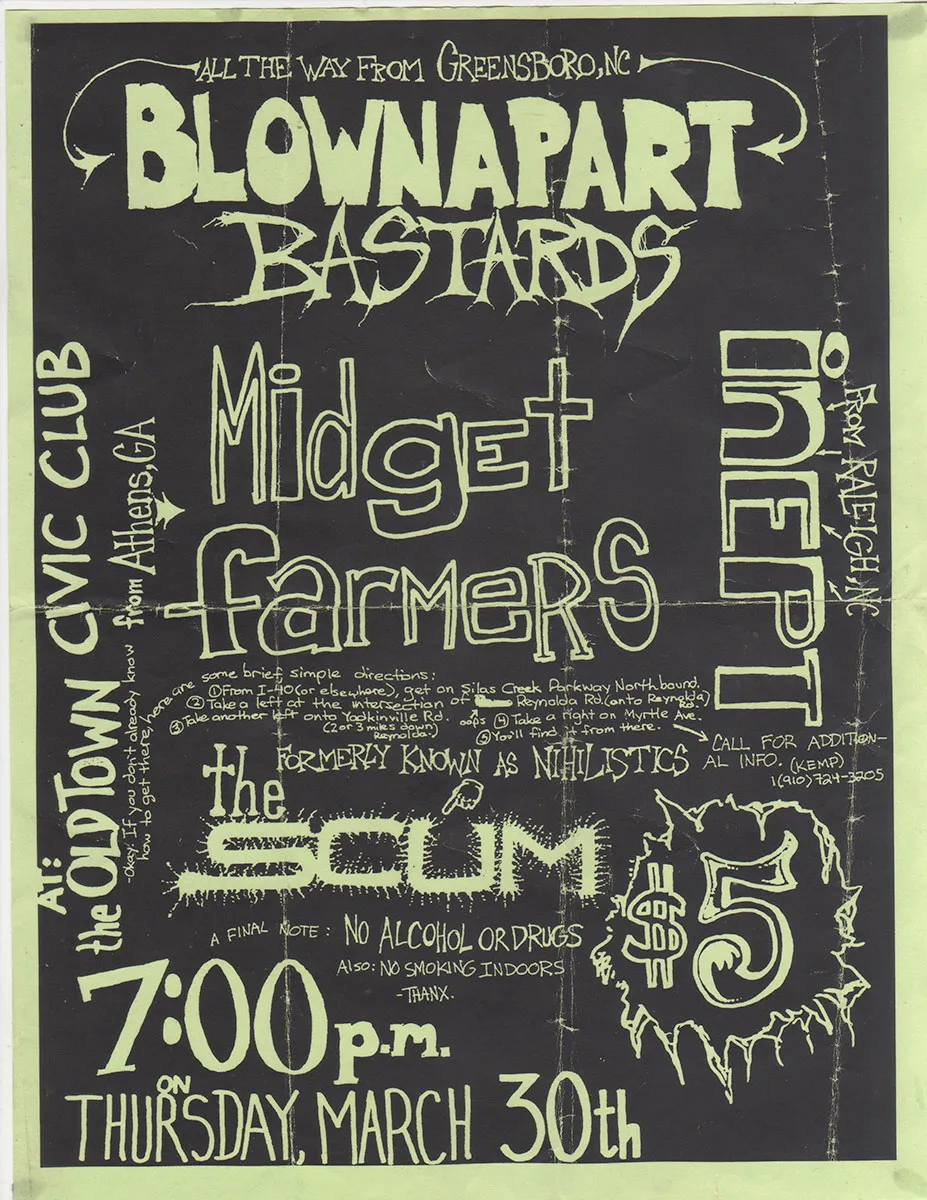 ALL THE WAY FROM GREENSBORO, NC
BLOWNAPART
BASTARDS
Midget
farmers
from Athens, GA
iNEPT
FROM RALEIGH, NC
At:
the OLD TOWN CIVIC CLUB
-okay. If you don't already know
how to get there, here are some brief, simple directions:
① From I-40 (or elsewhere), get on Silas Creek Parkway Northbound.
② Take a left at the intersection of Reynolda Rd. (onto Reynolda Rd.)
③ Take another left onto Yadkinville Rd.
(2 or 3 miles down Reynolda)
oops
④ Take a right on Myrtle Ave.
⑤ You'll find it from there.
CALL FOR ADDITION-
AL INFO. (KEMP)
1 (910) 724-3205
FORMERLY KNOWN AS NIHILISTICS
the
SCUM
$5
A FINAL NOTE: NO ALCOHOL OR DRUGS
ALSO: NO SMOKING INDOORS
-THANX.
7:00 p.m.
ON
THURSDAY, MARCH 30th